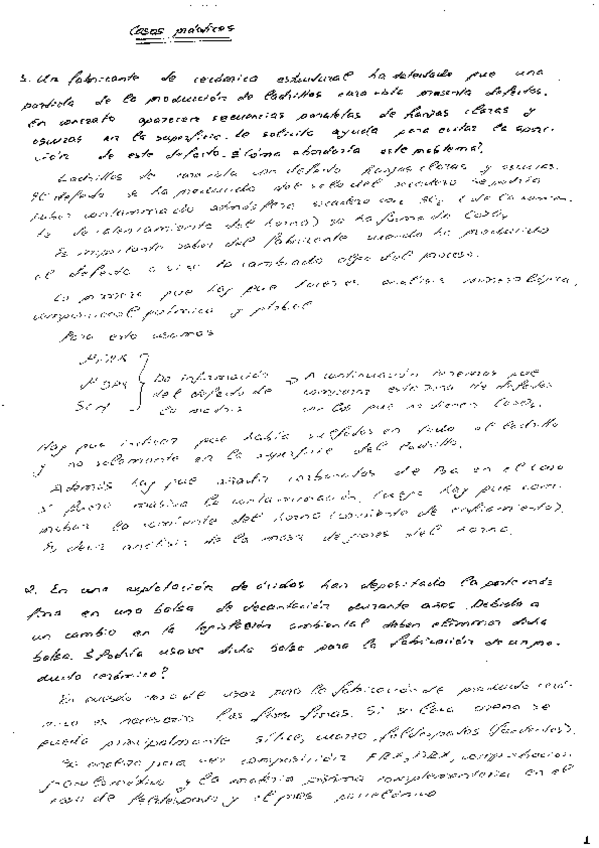 Casos prácticos
1. Un fabricante de cerámica estructural ha detectado que una
partida de la producción de ladrillos cara vista presenta defectos.
En concreto aparecen secuencias paralelas de franjas claras y
oscuras en la superficie. Le solicita ayuda para evitar la apari-
ción de este defecto. ¿Cómo abordaría este problema?
Ladrillos de cara vista con defecto franjas claras y oscuras.
El defecto se ha producido del secadero se podría
haber contaminado atmósfera secadero con (de la corrien-
te de calentamiento del horno) se ha formado CaSO4
Es importante saber del fabricante cuando ha producido
el defecto o si se ha cambiado algo del proceso.
Lo primero que hay que hacer es análisis mineralógico,
composicional y
Para esto usamos
μDRX
SEM
Da información
del defecto de
la
→ A continuación tenemos que
comparar esta zona de defectos
con las que no tienen CaSO4.
Hay que indicar que había sulfatos en todo el ladrillo
y no solamente en la superficie del ladrillo.
Además hay que añadir carbonatos de Ba en el caso
si fuera masiva la contaminación, luego hay que com-
probar la corriente del horno (corriente de enfriamiento).
Es decir análisis de la masa de gases del horno.
2. En una explotación de áridos han depositado la parte más
fina en una balsa de decantación durante años. Debido a
un cambio en la legislación ambiental deben eliminar dicha
balsa. ¿Podría usarse dicha balsa para la fabricación de un pro-
ducto cerámico?
En cuando se de usar para la fabricación de producto cerá-
mico es necesario las fases finas. Si se lava arena se
queda principalmente sílice, cuarzo, feldespatos (fundentes).
Se analiza para ver composición FRX, DRX,
granulométrico y la materia prima complementaria en el
caso de y el gres porcelánico
1